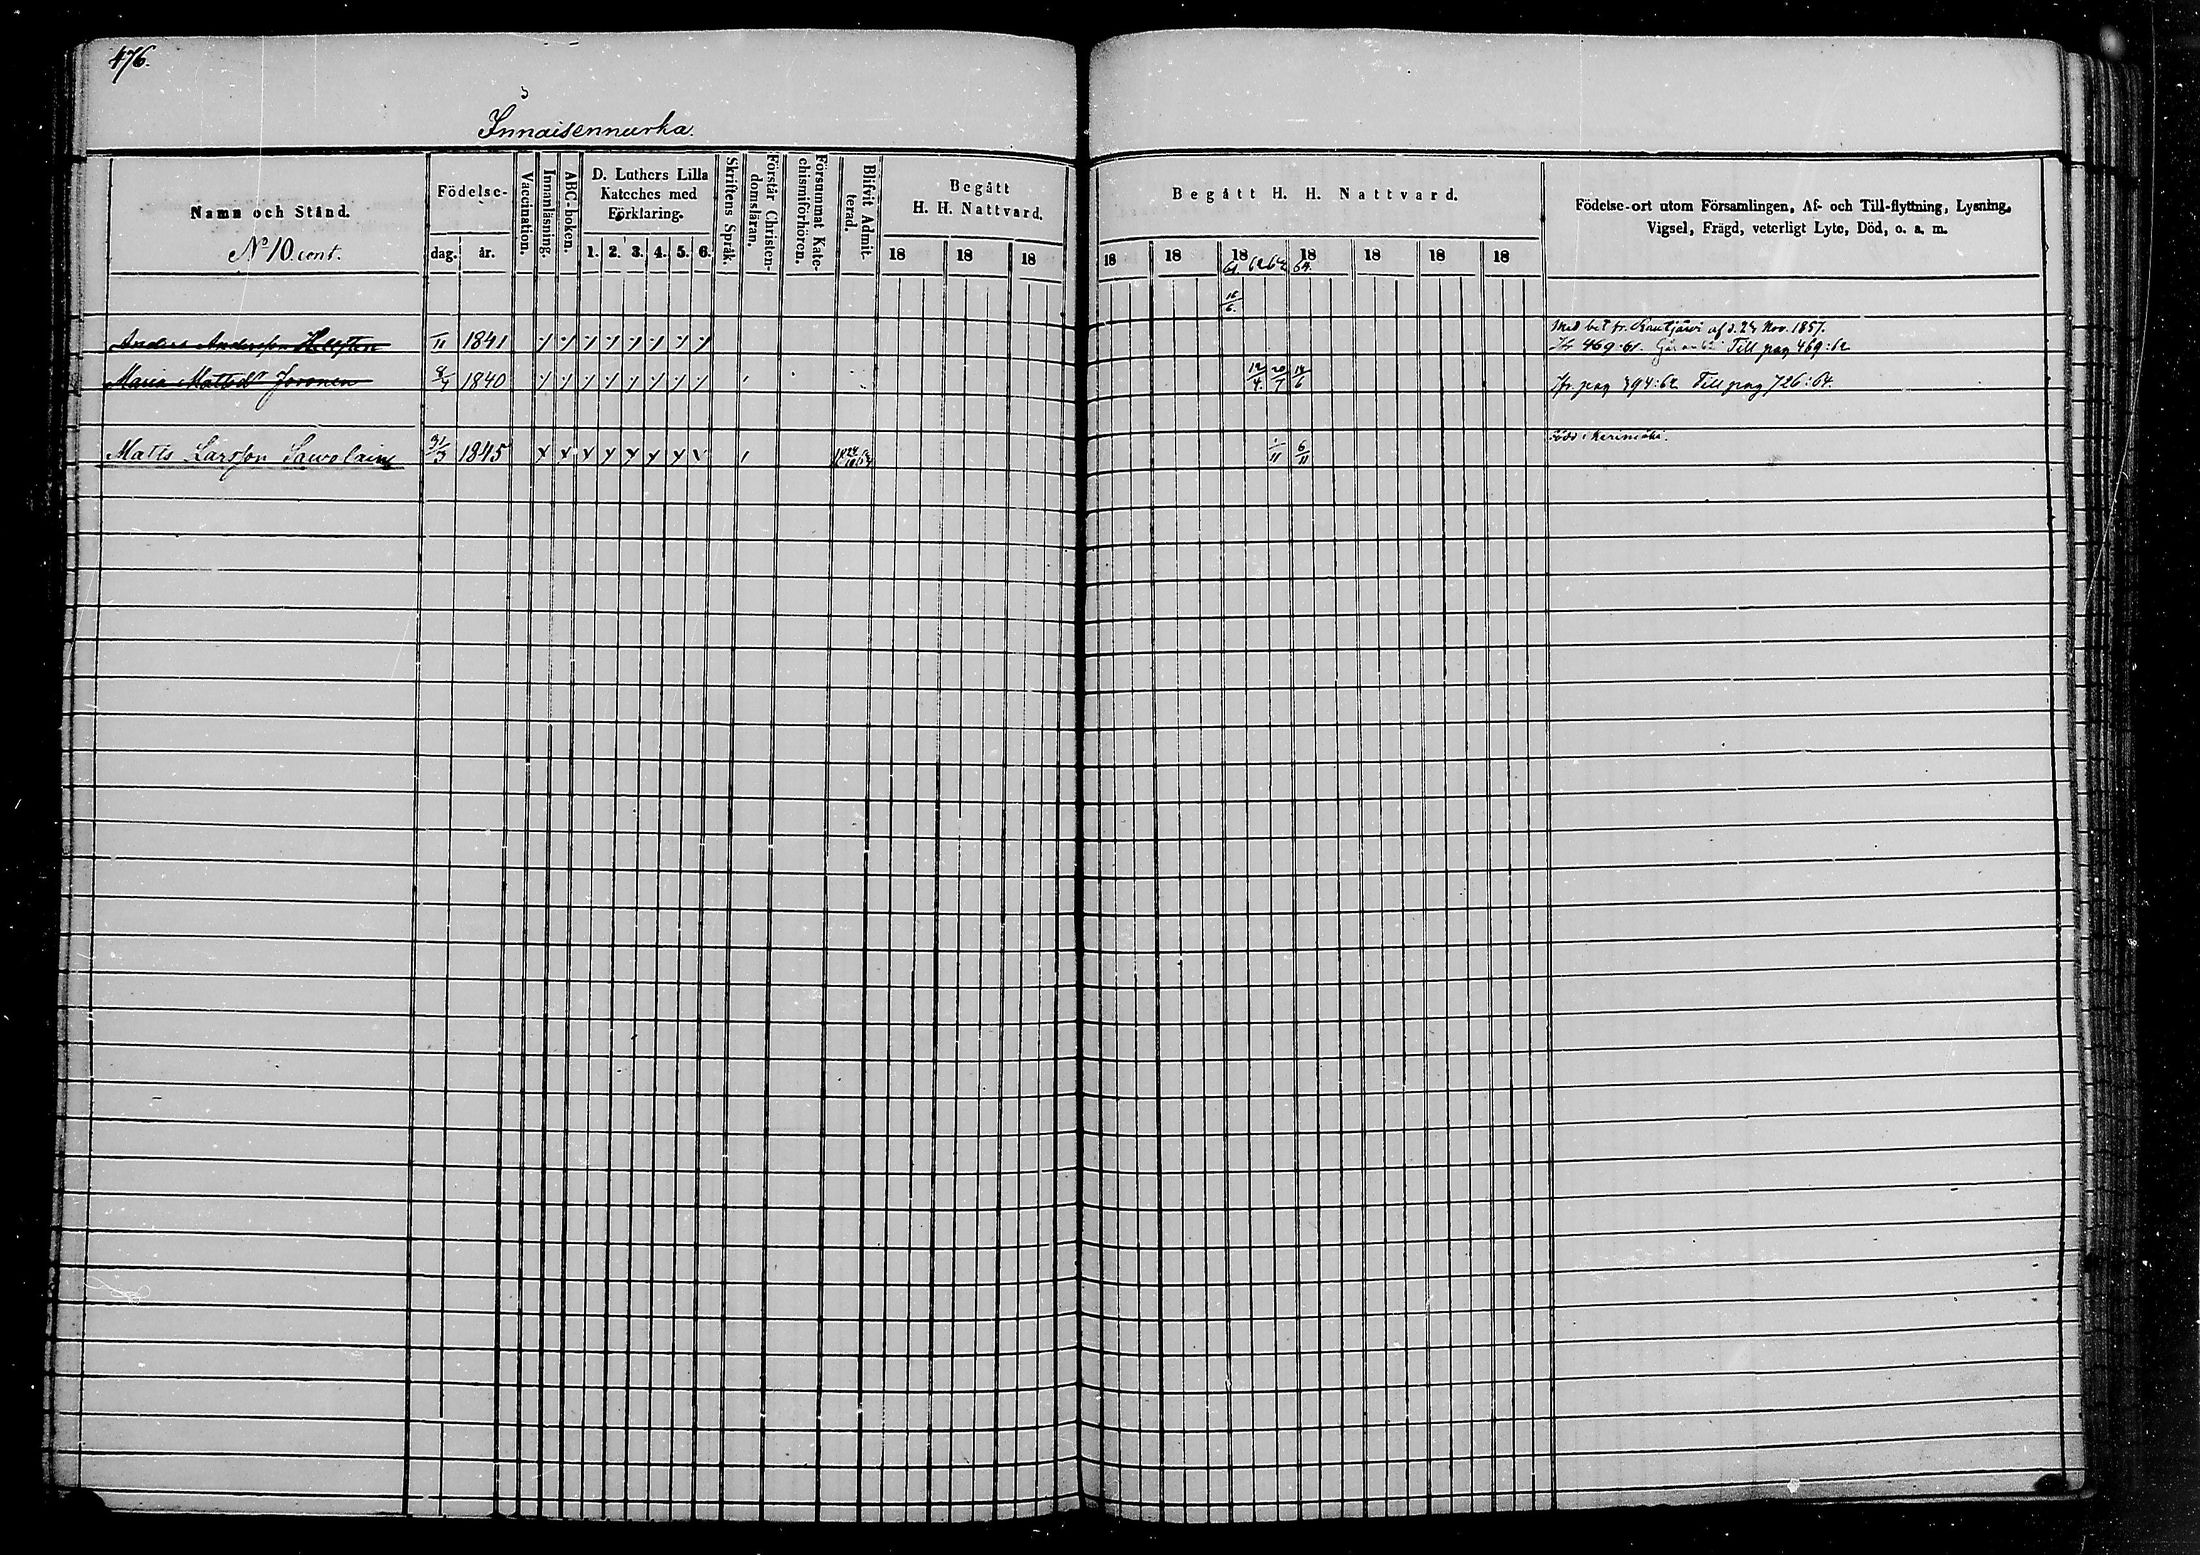 476.
Innaisennurka.
Namn och Stånd.
No 10 cont.
Födelse-
dag. år.
Vaccination.
Innanläsning.
ABC-boken.
D. Luthers Lilla
Kateches med
Förklaring.
1. 2. 3. 4. 5. 6.
Skriftens Språk.
Förstår Christen-
domsläran.
Försummat Kate-
chismiförhören.
Blifvit Admit-
terad.
Begått
H. H. Nattvard.
18 18 18
Begått H. H. Nattvard.
18 18 18 18 18 18 18
61. 62 64.
Födelse-ort utom Församlingen, Af- och Till-flyttning, Lysning,
Vigsel, Frägd, veterligt Lyte, Död, o. a. m.
16/6.
Med bet. fr. Rautjärvi af d. 24 Nov. 1857.
Anders Andersson Hellsten 1841
fr 469:61. Till pag 469:62
Maria Mattsdr Joronen 1840 20/7 fr. pag 494:62 Till pag 726:64.
Född i Kerimäki.
Matts Larsson Sawolain 31/3 1845 6/11